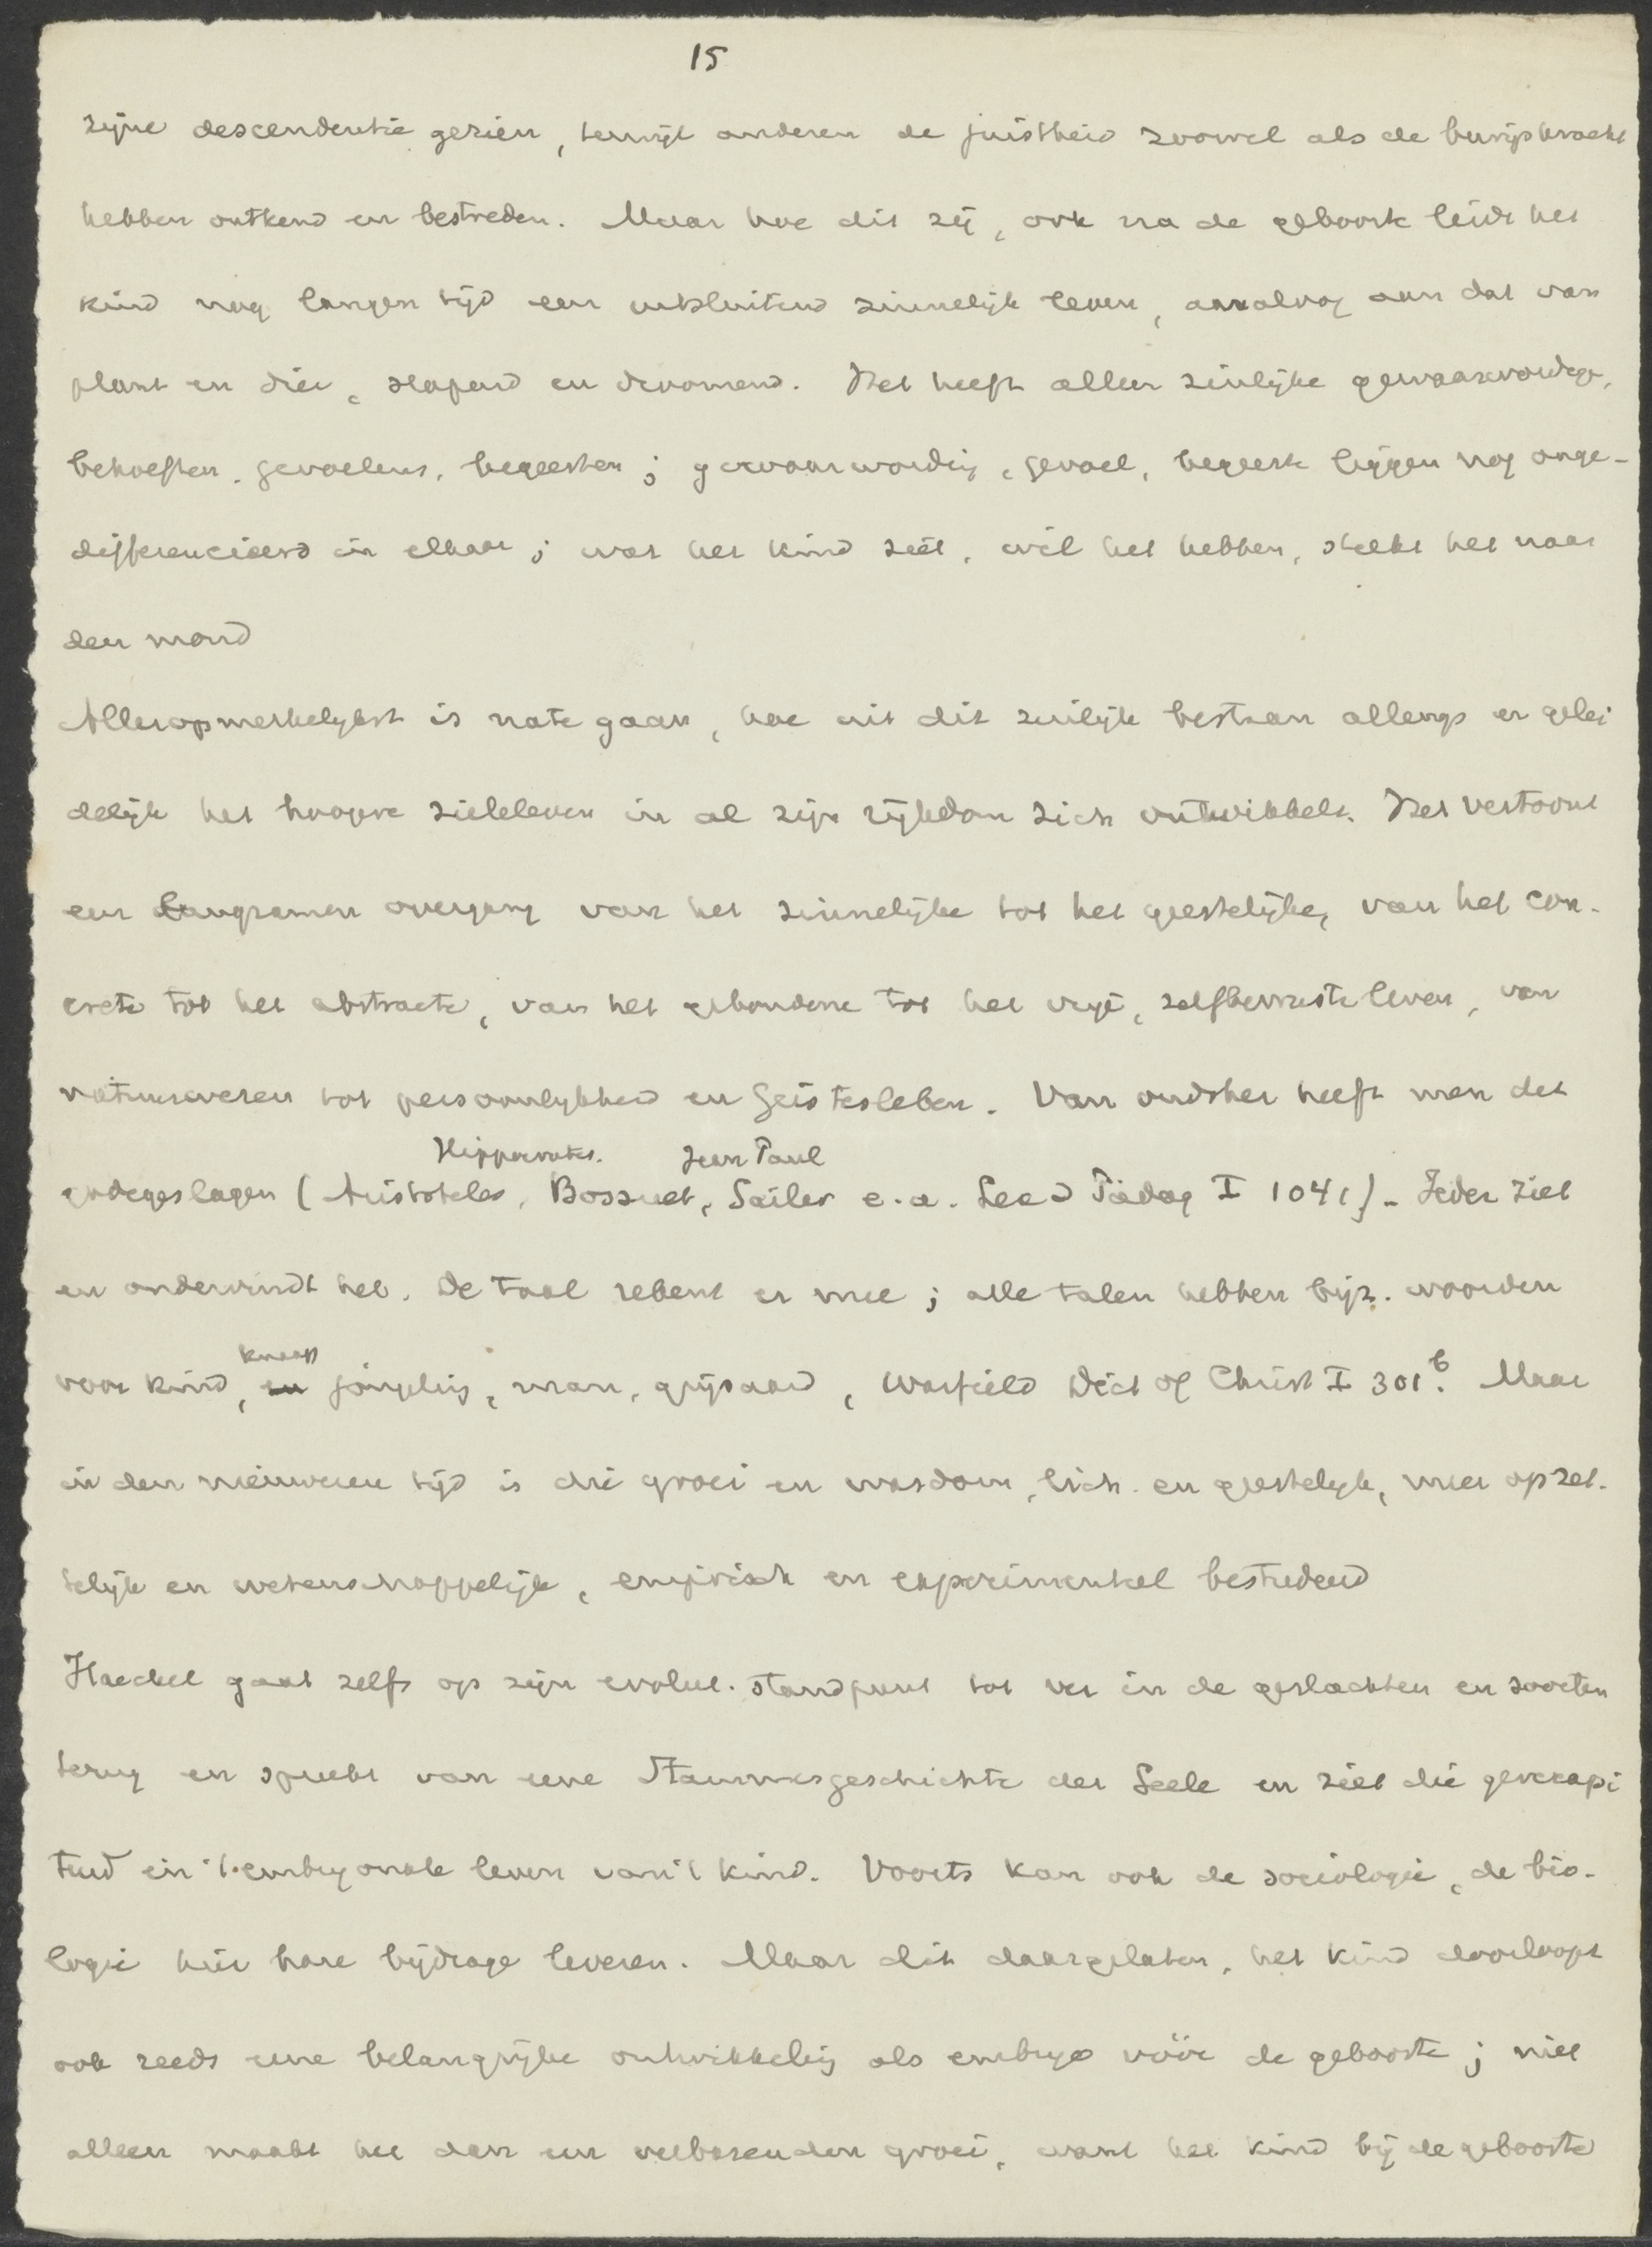 15
zijne descendentie gezien, terwijl anderen de juistheid zoowel als de bewijskracht
hebben ontkend en bestreden. Maar hoe dit zij, ook na de geboorte leidt het
kind nog langen tijd een uitsluitend zinnelijk leven, analoog aan dat van
plant en dier, slapend en droomend. Het heeft alleen zinlijke gewaarwordgn,
behoeften, gevoelens, begeerten; gewaarwording, gevoel, begeerte liggen nog onge-
differencieerd in elkaar; wat het kind ziet, wil het hebben, steekt het naar
den mond
Alleropmerkelijkst is nate gaan, hoe uit dit zinlijk bestaan allengs en gelei
delijk het hoogere zieleleven in al zijn rijkdom zich ontwikkelt. Het vertoont
een langzamen overgang van het zinnelijke tot het geestelijke, van het con-
crete tot het abstracte, van het gebondene tot het vrije, zelfbewuste leven, van
natuurwezen tot persoonlijkheid en Geistesleben. Van oudsher heeft men dit
Hippocrates. Jean Paul
gadegeslagen (Aristoteles, Bossuet, Sailer e.a. Lex d Pädag I 1041). Ieder ziet
en ondervindt het. De taal rekent er mee; alle talen hebben bijz. woorden
knaap
voor kind, en jongeling, man, grijsaard, Warfield Dict of Christ I 301b. Maar
in den nieuweren tijd is die groei en wasdom, lich. en geestelijk, meer opzet-
telijk en wetenschappelijk, empirisch en experimenteel bestudeerd
Haeckel gaat zelfs op zijn evolut. standpunt tot ver in de geslachten en soorten
terug en spreekt van eene Stammesgeschichte der Seele en ziet die gerecapi
tuld in 't embryonale leven van 't kind. Voorts kan ook de sociologie, de bio-
logie hier hare bijdrage leveren. Maar dit daargelaten, het kind doorloopt
ook reeds eene belangrijke ontwikkeling als embryo vóór de geboorte; niet
alleen maakt het dan een verbazenden groei, want het kind bij de geboorte